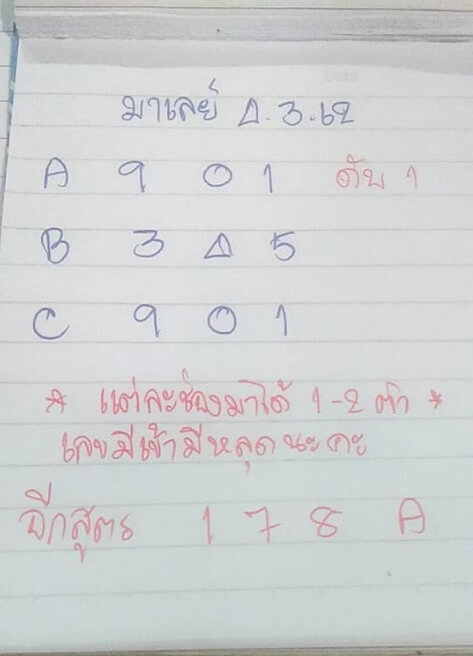 มาเลย์ 4.3.62
A 9 0 1 ดับ 1
B 3 4 5
C 9 0 1
* แต่ละช่องมาได้ 1-2 ตัว *
เลขมีเข้ามีหลุดนะคะ
อีกสูตร 1 7 8 A